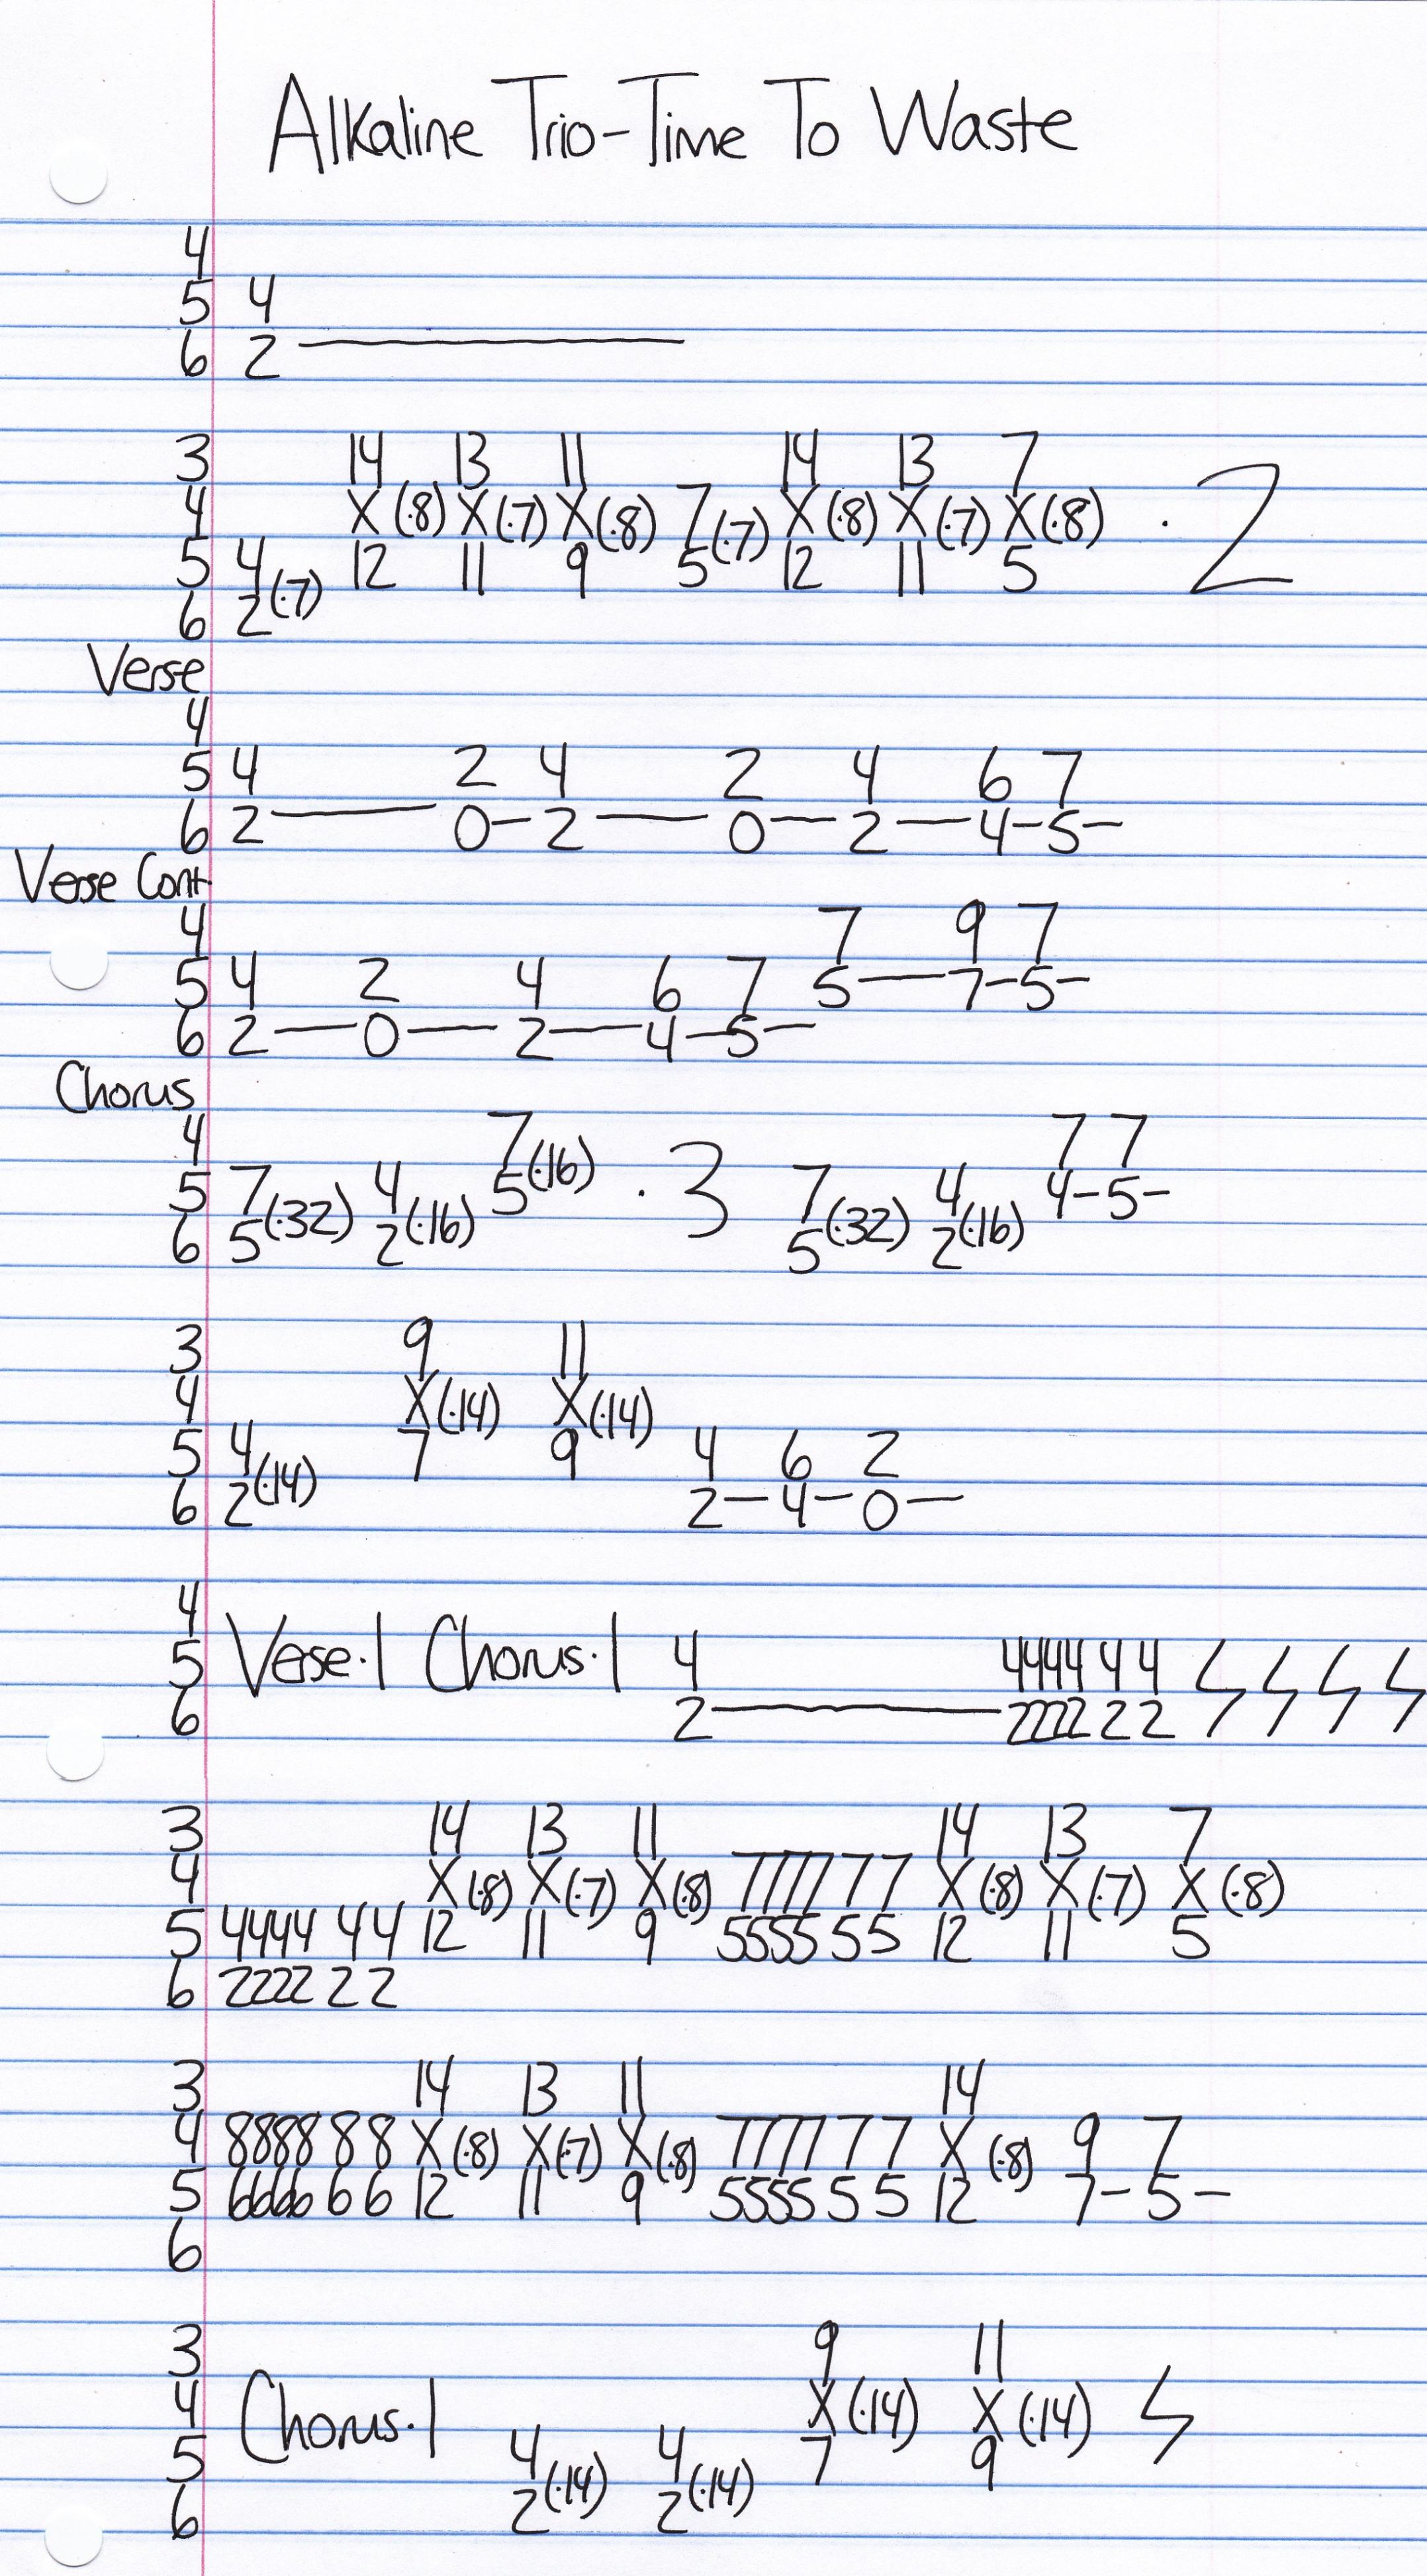 Alkaline Trio-Time To Waste
4
5 4
6 2 ————
3 14 13 11 14 13 7
4 X (·8) X (·7) X (·8) 7 (·7) X (·8) X (·7) X (·8) · 2
5 4 (·7) 12 11 9 5 12 11 5
6 2
Verse
4
5 4 2 4 2 4 6 7
6 2 —— 0 – 2 —— 0 — 2 — 4 – 5 –
Verse Cont.
4 7 9 7
5 4 2 4 6 7 5 — 7 – 5 –
6 2 — 0 — 2 — 4 – 5 –
Chorus
4 7 7 7
5 7 (·32) 4 (·16) 5 (·16) · 3 7 (·32) 4 (·16) 4 – 5 –
6 5 2 5 2
3 9 11
4 X (·14) X (·14)
5 4 (·14) 7 9 4 6 2
6 2 2 – 4 – 0 –
4
5 Verse·1 Chorus·1 4 4444 4 4
6 2 ———— 2222 2 2
3 14 13 11 14 13 7
4 X (·8) X (·7) X (·8) 7777 7 7 X (·8) X (·7) X (·8)
5 4444 4 4 12 11 9 5555 5 5 12 11 5
6 2222 2 2
3 14 13 11 14
4 8888 8 8 X (·8) X (·7) X (·8) 7777 7 7 X (·8) 9 7
5 6666 6 6 12 11 9 5555 5 5 12 7 – 5 –
6
3 9 11
4 Chorus·1 X (·14) X (·14)
5 4 (·14) 4 (·14) 7 9
6 2 2